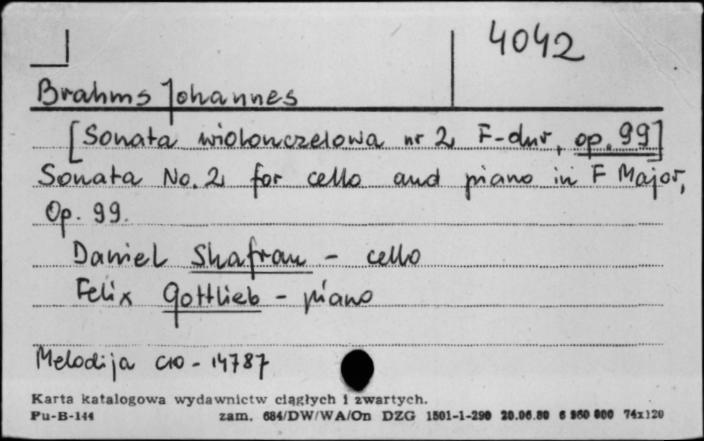 4042
Brahms Johannes
[Sonata wiolonczelowa nr 2, F-dur, op. 99]
Sonata No. 2, for cello and piano in F Major,
Op. 99.
Daniel Shafran - cello
Felix Gottlieb - piano
Melodija C10-14787
Karta katalogowa wydawnictw ciągłych i zwartych.
Pu-B-144 zam. 684/DW/WA/On DZG 1501-1-290 20.06.80 6 860 000 74x120